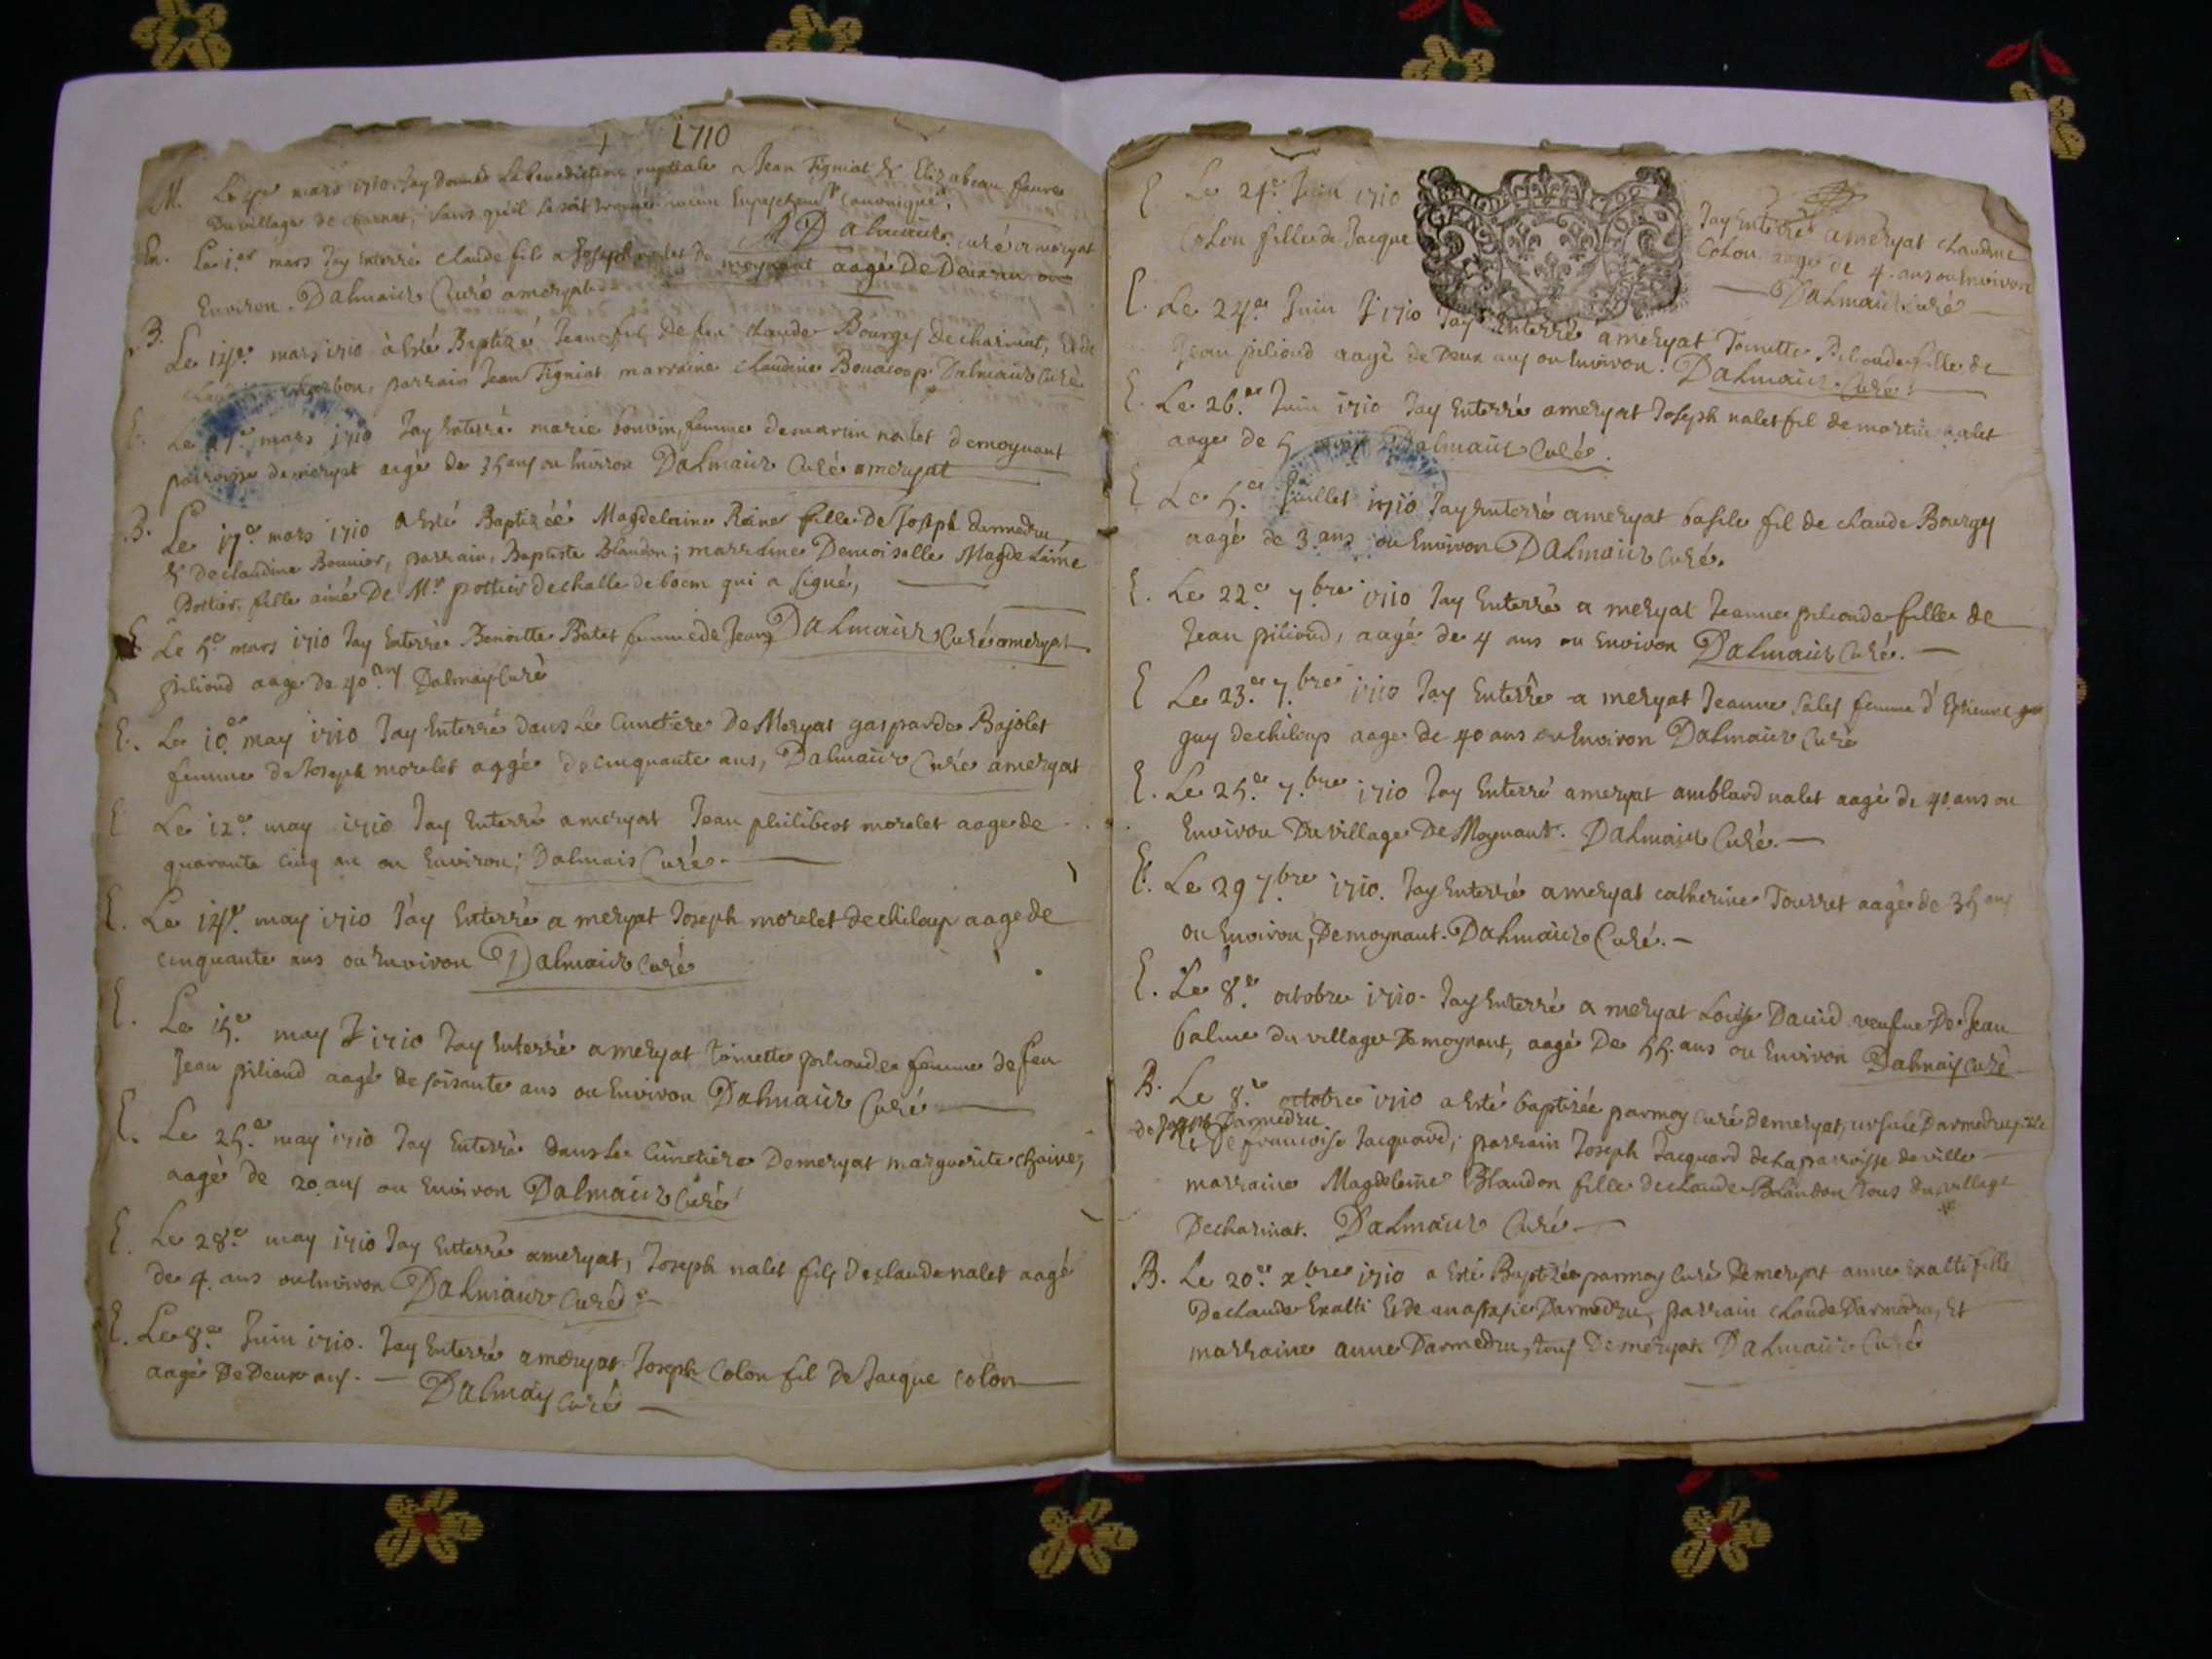 1710
M. Le 4e mars 1710. Jay Donné La Benediction nuptiale a Jean Tigniat & Elizabeau faure
Du village de charnat, sans quil se soit trouvé aucun Empeschemt canonique.
Dalmaiis curé a meryat
En. Le 1er mars Jay Enterré claude fils a Joseph nalet de moynant aagé De Deux ans ou
Environ. Dalmaiis Curé a meryat
B. Le 14e mars 1710 à Esté Baptizé Jean fils de feu claude Bourgey de charinat, Et de
charbon, parrain Jean Tigniat marraine claudine Bouacoop. Dalmaiis Curé
E. Le mars 1710 Jay Enterré marie bonvin, femme de martin nalet de moynant
parroisse de meryat aagé de 35 ans ou Environ Dalmaiis Curé a meryat
B. Le 17e mars 1710 a Esté Baptizéé Magdelaine Reine fille De Joseph darmedru
& De claudine Bonnier, parrain, Baptiste Blandon; marraine Demoiselle Magdelaine
Pottier, fille ainé De Mr pottier de challe de boem qui a signé,
E Le 5e mars 1710 Jay Enterré Benoitte Batet femme de Jean Dalmaiis Curé a meryat
piliond aagé de 40 ans Dalmay Curé
E. Le 10e may 1710 Jay Enterré dans Le Cimetiere De Meryat gasparde Bajolet
femme de Joseph morelet aagé de cinquante ans, Dalmaiis Curé a meryat
E Le 12e may 1710 Jay Enterré a meryat Jean philibert morelet aagé de
quarante cinq an ou Environ; Dalmais Curé.
E. Le 14e may 1710 Jay Enterré a meryat Joseph morelet de chiloup aagé de
cinquante ans ou Environ Dalmaiis Curé
E. Le 15e may 1710 Jay Enterré a meryat toinette pilionde femme de feu
Jean piliond aagé de soisante ans ou Environ Dalmaiis Curé
E. Le 25e may 1710 Jay Enterré dans Le Cimetiere De meryat marguerite chaine,
aagé de 20 ans ou Environ Dalmaiis Curé
E. Le 28e may 1710 Jay Enterré a meryat, Joseph nalet fils De claude nalet aagé
de 4. ans ou Environ Dalmaiis Curé
E. Le 8e Juin 1710. Jay Enterré a meryat Joseph Colon fil de Jacque colon
aagé De Deux ans. Dalmay Curé
E Le 24e Juin 1710 Jay Enterré a meryat claudine
Colon fille de Jacque Colon aagé de 4. ans ou Environ
Dalmaiis Curé
E. Le 24e Juin 1710 Jay Enterré a meryat Toinette Pilionde fille de
Jean piliond aagé de Deux ans ou Environ. Dalmaiis Curé.
E. Le 26e Juin 1710 Jay Enterré a meryat Joseph nalet fil de martin nalet
aagé de 5 Dalmaiis Curé.
E Le 5e Juillet 1710 Jay Enterré a meryat basile fil de claude Bourgey
aagé de 3 ans ou Environ Dalmaiis Curé.
E. Le 22e 7bre 1710 Jay Enterré a meryat Jeanne pilionde fille de
Jean piliond, aagé de 4 ans ou Environ Dalmaiis Curé.
E Le 23e 7bre 1710 Jay Enterré a meryat Jeanne Saley femme d'Estienne
guy de chiloup aagé de 40 ans ou Environ Dalmaiis Curé
E. Le 25e 7bre 1710 Jay Enterré a meryat amblard nalet aagé de 40 ans ou
Environ Du village De Moynant. Dalmaiis Curé.
E. Le 29 7bre 1710. Jay Enterré a meryat catherine Tourret aagé de 35 ans
ou Environ, De moynant. Dalmaiis Curé.
E. Le 8e octobre 1710. Jay Enterré a meryat Louise David veufve De Jean
balme du village De moynant, aagé De 55. ans ou Environ Dalmay Curé
B. Le 8e octobre 1710 a Esté baptizée par moy Curé de meryat, ursule Darmedru fille
de Joseph Darmedru
Et De francoise Jacquard, parrain Joseph Jacquard de La parroisse de ville
marraine Magdeleine Blandon fille de claude Blandon tous du village
De charinat. Dalmaiis Curé
B. Le 20e xbre 1710 a Esté Baptizée par moy Curé De meryat anne Exalti fille
De claude Exalti Et de anastasie Darmedru, parrain claude Darmedru, Et
marraine anne Darmedru, tous De meryat. Dalmaiis Curé